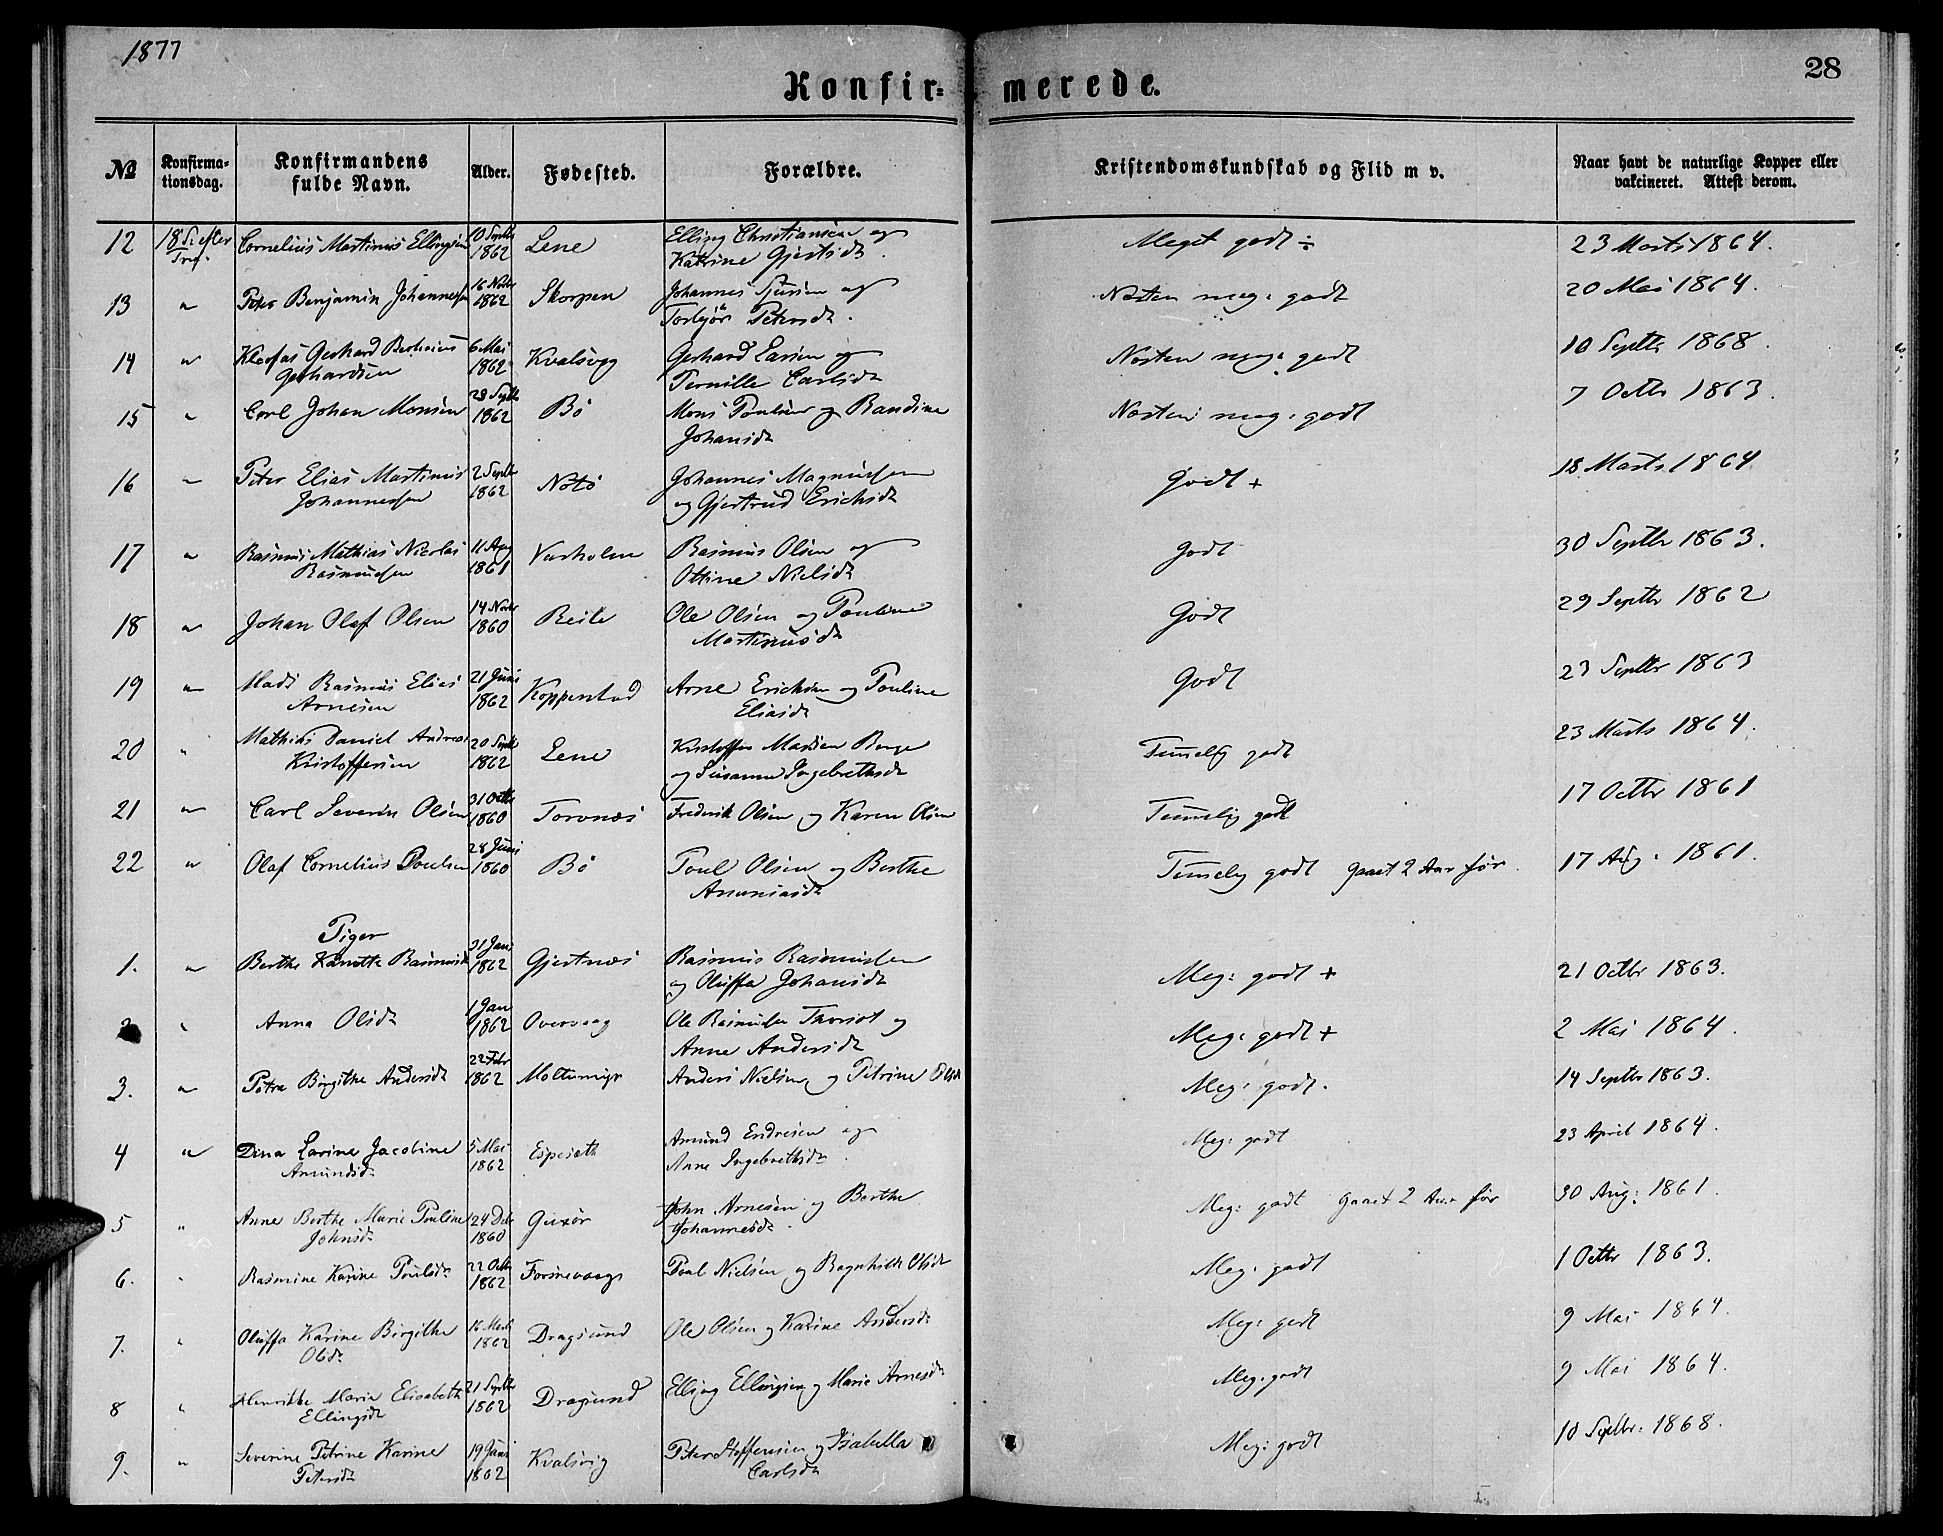 1877
28
Konfir=merede.
№ Konfirma-tionsdag. Konfirmandens fulde Navn. Alder. Fødested. Forældre. Kristendomskundskab og Flid m v. Naar havt de naturlige Kopper eller vakcineret. Attest derom.
12 18 S. efter Tref. Cornelius Martinus Ellingsen 10 Septbr 1862 Lene Elling Christiansen og Katrine Gjertsdr. Meget godt ÷ 23 Marts 1864.
13 " Peter Benjamin Johannesen 16 Novbr 1862 Skorpen Johannes Sjursen og Torbjør Petersdr. Næsten meg: godt 20 Mai 1864.
14 " Kleofas Gerhard Berhaus Gerhardsen 6 Mai 1862 Kvalsvig Gerhard Larsen og Pernille Carlsdr Næsten meg: godt 10 Septbr 1868.
15 " Carl Johan Monsen 28 Septbr 1862 Bø Mons Poulsen og Randine Johansdr Næsten meg: godt 7 Octbr 1863.
16 " Peter Elias Martinus Johannessen 2 Septbr 1862 Notø Johannes Magnussen og Gjertrud Erichsdr Godt + 18 Marts 1864
17 " Rasmus Mathias Nicolai Rasmussen 11 Aug 1861 Varholm Rasmus Olsen og Ottine Nielsdr Godt 30 Septbr 1863.
18 " Johan Olaf Olsen 14 Novbr 1860 Reite Ole Olsen og Pouline Martinusdr Godt 29 Septbr 1862
19 " Mads Rasmus Elias Arnesen 21 Juni 1862 Koppenstad Arne Ericksen og Pouline Eliasdr Godt 23 Septbr 1863
20 " Mathias Daniel Andreas Kristoffersen 20 Septbr 1862 Lene Kristoffer Madsen Berge og Susanne Ingebrethsdr Temelig godt 23 Marts 1864.
21 " Carl Severin Olsen 31 Octbr 1860 Torvnæs Frederik Olsen og Karen Olsen Temelig godt 17 Octbr 1861
22 " Olaf Cornelius Poulsen 28 Juni 1860 Bø Poul Olsen og Berthe Ananiasdr Temelig godt gaaet 2 Aar før. 17 Aug: 1861.
Piger
1. " Berthe Kanutte Rasmusdr 31 Jan: 1862 Gjertnæs Rasmus Rasmussen og Oluffa Johansdr Meg: godt + 21 Octbr 1863.
2 " Anna Olsdr 1 Jan 1862 Overvaag Ole Rasmussen Thorset og Anne Andersdr Meg: godt + 2 Mai 1864.
3. " Petra Birgithe Andersdr 22 Febr 1862 Moltumyr Anders Nielsen og Petrine Olsdr Meg: godt. 14 Septbr 1863.
4 " Dina Larine Jacobine Amundsdr 5 Mai 1862 Espesæth Amund Endresen og Anne Ingebrethsdr. Meg: godt 23 April 1864.
5 " Anne Berthe Marie Pouline Johnsdr 24 Dcbr 1860 Gursør John Arnesen og Berthe Johannesdr. Meg: godt gaaet 2 Aar før 30 Aug: 1861.
6. " Rasmine Karine Poulsdr 22 Octbr 1862 Fosnevaag Poul Nielsen og Ragnhild Olsdr Meg: godt 1 Octbr 1863.
7. " Oluffa Karine Birgitha Olsdr 16 Marts 1862 Dragsund Ole Olsen og Karine Andersdr Meg: godt 9 Mai 1864.
8 " Henrikke Marie Elisabeth Ellingsdr 21 Septbr 1862 Dragsund Elling Ellingsen og Marie Arnesdr Meg: godt 9 Mai 1864.
9. " Severine Petrine Karine Petersdr 19 Juni 1862 Kvalsvig Peter Steffensen og Isabella Carlsdr Meg: godt 10 Septbr: 1868.